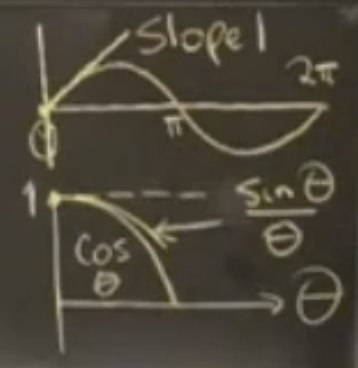 Slope 1
2π
π
0
1
sin θ
θ
cos
θ
θ